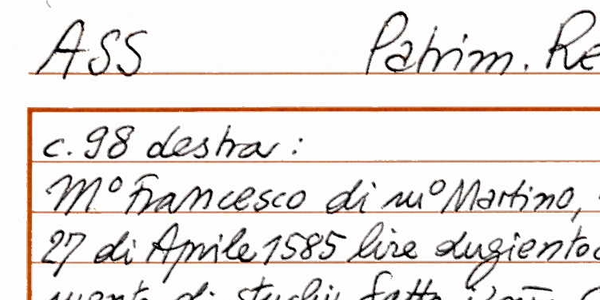 ASS Patrim. Re
c. 98 destra:
M° Francesco di m° Martino,
27 di Aprile 1585 lire dugiento
di studii fatto